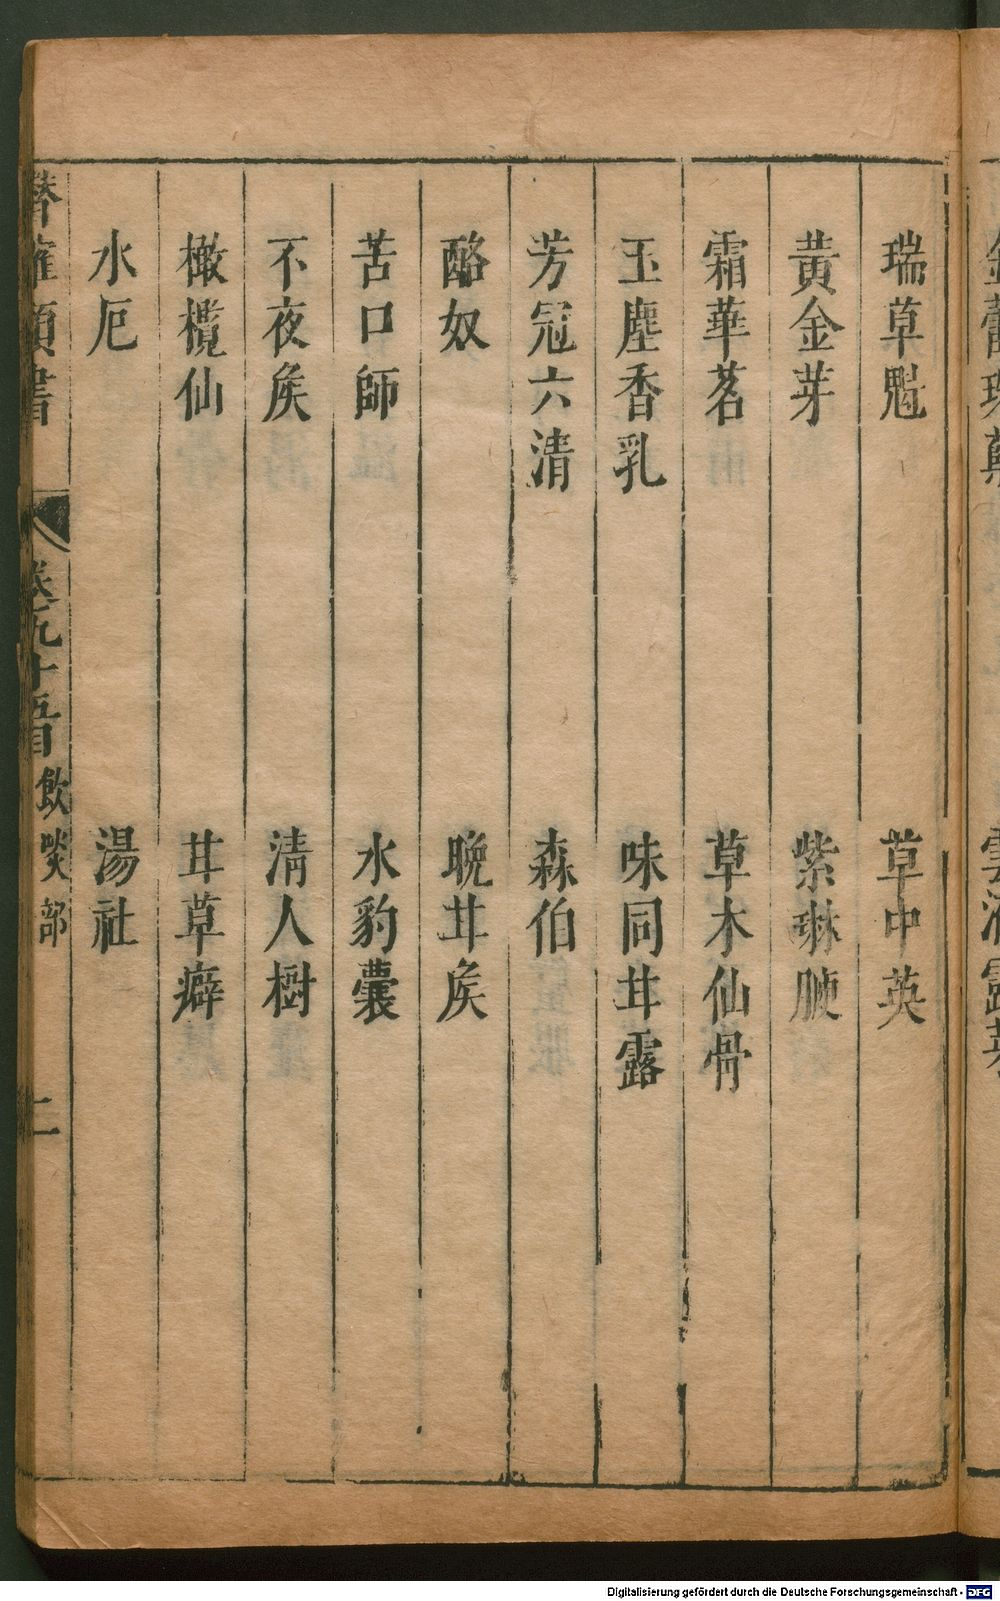 瑞草魁 草中英
黃金芽 紫琳腴
霜華茗 草木仙骨
玉塵香乳 味同甘露
芳冠六清 森伯
酪奴 晚甘矦
苦口師 水豹囊
不夜矦 清人樹
橄欖仙 甘草癖
水厄 湯社
潛確類書 卷九十五 飲啖部 二
Digitalisierung gefördert durch die Deutsche Forschungsgemeinschaft - DFG